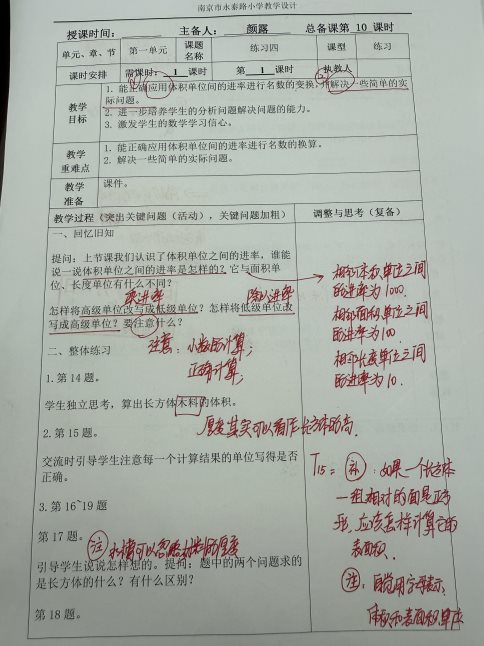 南京市永泰路小学教学设计
授课时间： 主备人： 颜露 总备课第 10 课时
单元、章、节 第一单元 课题名称 练习四 课型 练习
课时安排 需课时： 1 课时 第 1 课时 执教人
教学目标
1. 能正确应用体积单位间的进率进行名数的变换，解决一些简单的实
际问题。
2. 进一步培养学生的分析问题解决问题的能力。
3. 激发学生的数学学习信心。
教学重难点
1. 能正确应用体积单位间的进率进行名数的换算。
2. 解决一些简单的实际问题。
教学准备
课件。
教学过程（突出关键问题（活动），关键问题加粗） 调整与思考（复备）
一、回忆旧知
提问：上节课我们认识了体积单位之间的进率，谁能
说一说体积单位之间的进率是怎样的？它与面积单
位、长度单位有什么不同？
乘进率 除以进率
怎样将高级单位改写成低级单位？怎样将低级单位改
写成高级单位？要注意什么？
注意：小数的计算；
正确计算；
相邻体积单位之间
的进率为1000.
相邻面积单位之间
的进率为100
相邻长度单位之间
的进率为10.
二、整体练习
1. 第 14 题。
学生独立思考，算出长方体木料的体积。
厚度其实可以看作长方体的高.
2. 第 15 题。
交流时引导学生注意每一个计算结果的单位写得是否
正确。
T15= 补：如果一个长方体
一组相对的面是正方
形，应该怎样计算它的
表面积.
注：自觉用字母表示
体积和表面积单位
3. 第 16~19 题
第 17 题。
注
引导学生说说怎样想的。提问：题中的两个问题求的
是长方体的什么？有什么区别？
第 18 题。